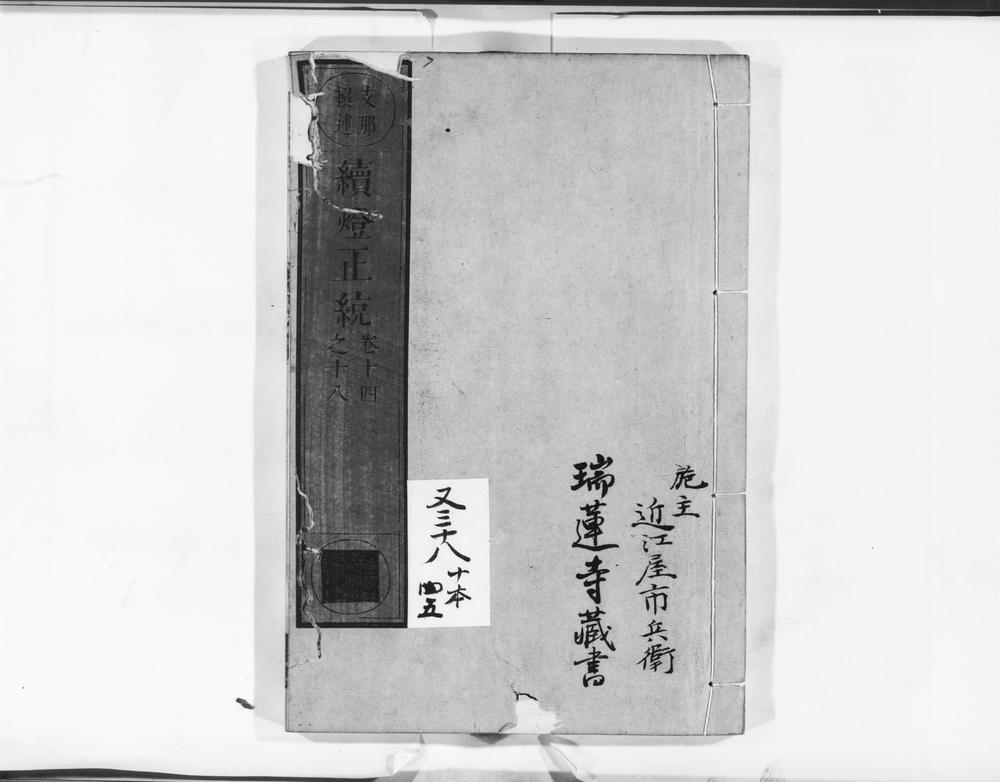 施主
近江屋市兵衛
瑞蓮寺藏書
支那
撰述
續燈正統
卷十四
之十八
又三十八
十本
四五